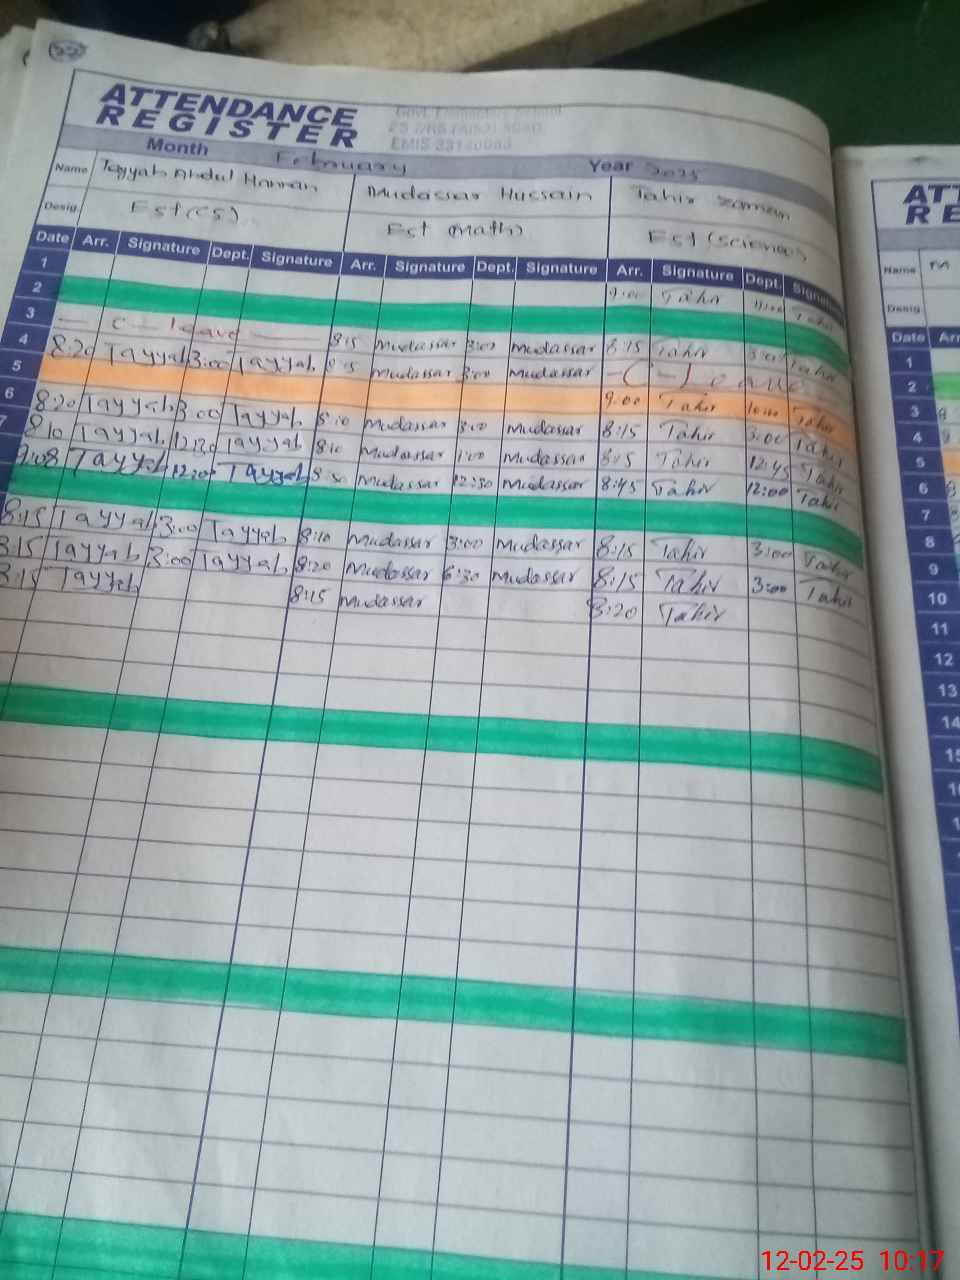 ATTENDANCE
REGISTER
Govt. Elementary School
Month February Year 2025
Name Tayyab Abdul Hannan Mudassar Hussain Tahir Zaman
Desig. Est (CS) Est (Math) Est (Science)
Date Arr. Signature Dept. Signature Arr. Signature Dept. Signature Arr. Signature Dept. Signature
1
2 9:00 Tahir Tahir
3 C - Leave 8:15 Mudassar 3:00 Mudassar 8:15 Tahir 3:00 Tahir
4 8:20 Tayyab 3:00 Tayyab 8:15 Mudassar 3:00 Mudassar - C - Leave
5 9:00 Tahir 10:00 Tahir
6 8:20 Tayyab 3:00 Tayyab 8:10 Mudassar 3:00 Mudassar 8:15 Tahir 3:00 Tahir
7 8:10 Tayyab 12:30 Tayyab 8:10 Mudassar 1:00 Mudassar 8:15 Tahir 12:45 Tahir
9:08 Tayyab 12:00 Tayyab 8:30 Mudassar 12:30 Mudassar 8:45 Tahir 12:00 Tahir
8:15 Tayyab 3:00 Tayyab 8:10 Mudassar 3:00 Mudassar 8:15 Tahir 3:00 Tahir
8:15 Tayyab 3:00 Tayyab 8:20 Mudassar 6:30 Mudassar 8:15 Tahir 3:00 Tahir
8:15 Tayyab 8:15 Mudassar 8:20 Tahir
Name
Desig
Date Arr
1
2
3
4
5
6
7
8
9
10
11
12
13
14
12-02-25 10:17